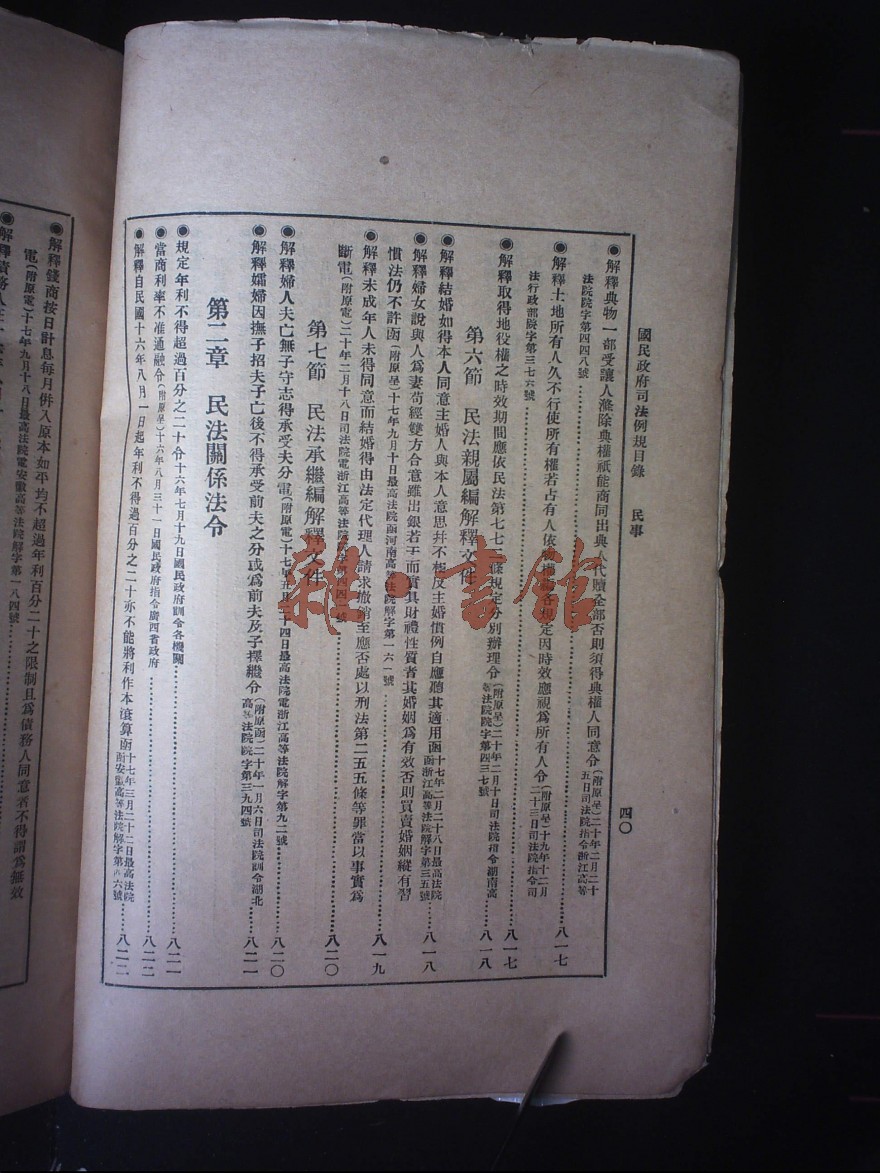 國民政府司法例規目錄 民事 四〇
◉解釋典物一部受讓人滌除典權祇能商同出典人代贖全部否則須得典權人同意令(附原呈)二十年二月二十五日司法院指令浙江高等
法院院字第四四八號……八一七
◉解釋土地所有人久不行使所有權若占有人依物權編各規定因時效應視爲所有人令(附原呈)十九年十二月二十三日司法院指令司
法行政部院字第三七六號……八一七
◉解釋取得地役權之時效期間應依民法第七七條規定分別辦理令(附原呈)二十年二月十日司法院指令湖南高等法院院字第四三七號……八一八
第六節 民法親屬編解釋文件
◉解釋結婚如得本人同意主婚人與本人意思幷不相反主婚慣例自應聽其適用函十七年二月二十八日最高法院函浙江高等法院解字第三五號……八一八
◉解釋婦女說與人爲妻苟經雙方合意雖出銀若干而實具財禮性質者其婚姻爲有效否則買賣婚姻縱有習
慣法仍不許函(附原呈)十七年九月十日最高法院函河南高等法院解字第一六一號……八一九
◉解釋未成年人未得同意而結婚得由法定代理人請求撤銷至應否處以刑法第二五五條等罪當以事實爲
斷電(附原電)二十年二月十八日司法院電浙江高等法院院字第四四〇號……八二〇
第七節 民法承繼編解釋文件
◉解釋婦人夫亡無子守志得承受夫分電(附原電)十七年五月二十四日最高法院電浙江高等法院解字第九二號……八二〇
◉解釋孀婦因撫子招夫子亡後不得承受前夫之分或爲前夫及子擇繼令(附原函)二十年一月六日司法院訓令湖北高等法院院字第三九四號……八二一
第二章 民法關係法令
◉規定年利不得超過百分之二十令十六年七月十九日國民政府訓令各機關……八二一
◉當商利率不准通融令(附原呈)十六年八月三十一日國民政府指令廣西省政府……八二二
◉解釋自民國十六年八月一日起年利不得過百分之二十亦不能將利作本滾算函十七年三月二十二日最高法院函安徽高等法院解字第六號……八二二
◉解釋錢商按日計息每月併入原本如平均不超過年利百分二十之限制且爲債務人同意者不得謂爲無效
電(附原電)十七年九月十八日最高法院電安徽高等法院解字第一八四號
◉解釋債務人在
雜·書館